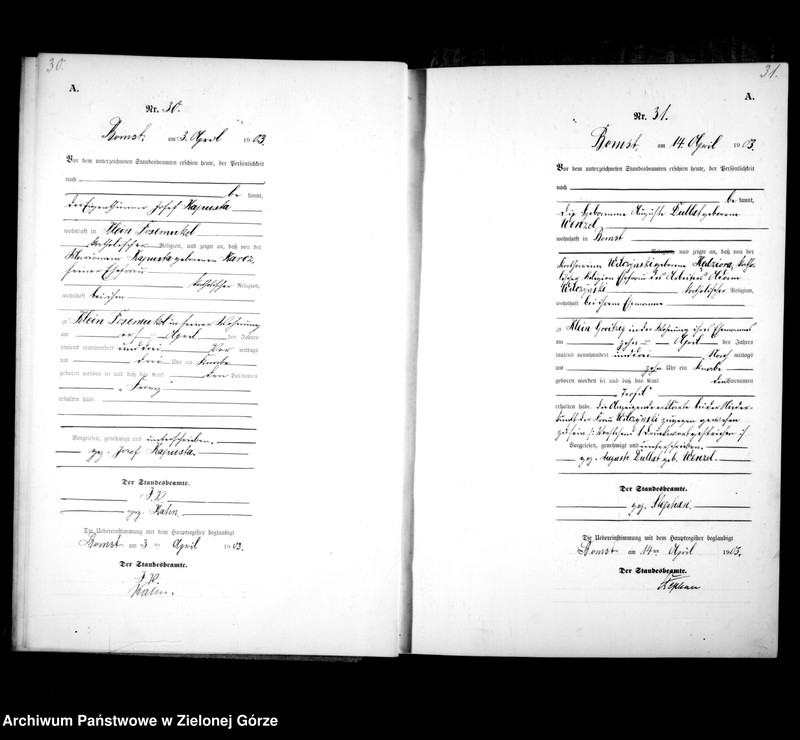 30.
A.
Nr. 30.
Bomst. am 3. April 1903.
Vor dem unterzeichneten Standesbeamten erschien heute, der Persönlichkeit
nach
be kannt,
der Eigenthümer Josef Kapusta
wohnhaft in Klein Posemukel
katholischer Religion, und zeigte an, daß von der
Kapusta geborenen
seiner Ehefrau
katholischer Religion,
wohnhaft bei ihm
zu Klein Posemukel in seiner Wohnung
am April des Jahres
tausend neunhundert und drei Vor mittags
um drei Uhr ein Knabe
geboren worden sei und daß das Kind den Vornamen
Franz
erhalten habe.
Vorgelesen, genehmigt und unterschrieben.
gez. Josef Kapusta.
Der Standesbeamte.
J. V.
gez.
Die Uebereinstimmung mit dem Hauptregister beglaubigt
Bomst am 3 ten April 1903.
Der Standesbeamte.
J. V.
31.
A.
Nr. 31.
Bomst, am 14. April 1903.
Vor dem unterzeichneten Standesbeamten erschien heute, der Persönlichkeit
nach
be kannt,
die Hebamme Auguste Dullat geborene
Wenzel
wohnhaft in Bomst
Religion, und zeigte an, daß von der
Witczynski geborene katho-
lischer Religion Ehefrau des Arbeiters
Witczynski katholischer Religion,
wohnhaft bei ihrem Ehemanne
zu Klein in der Wohnung ihres Ehemannes
am zehn ten April des Jahres
tausend neunhundert und drei Nach mittags
um zehn Uhr ein Knabe
geboren worden sei und daß das Kind den Vornamen
Josef
erhalten habe. Die Anzeigende erklärte bei der Nieder-
kunft der Frau Witczynski zugegen gewesen
zu sein. Vorstehend 1 Druckwort gestrichen
Vorgelesen, genehmigt und unterschrieben.
gez. Auguste Dullat geb. Wenzel.
Der Standesbeamte.
gez. Stephan
Die Uebereinstimmung mit dem Hauptregister beglaubigt
Bomst am 14 ten April 1903.
Der Standesbeamte.
Stephan
Archiwum Państwowe w Zielonej Górze